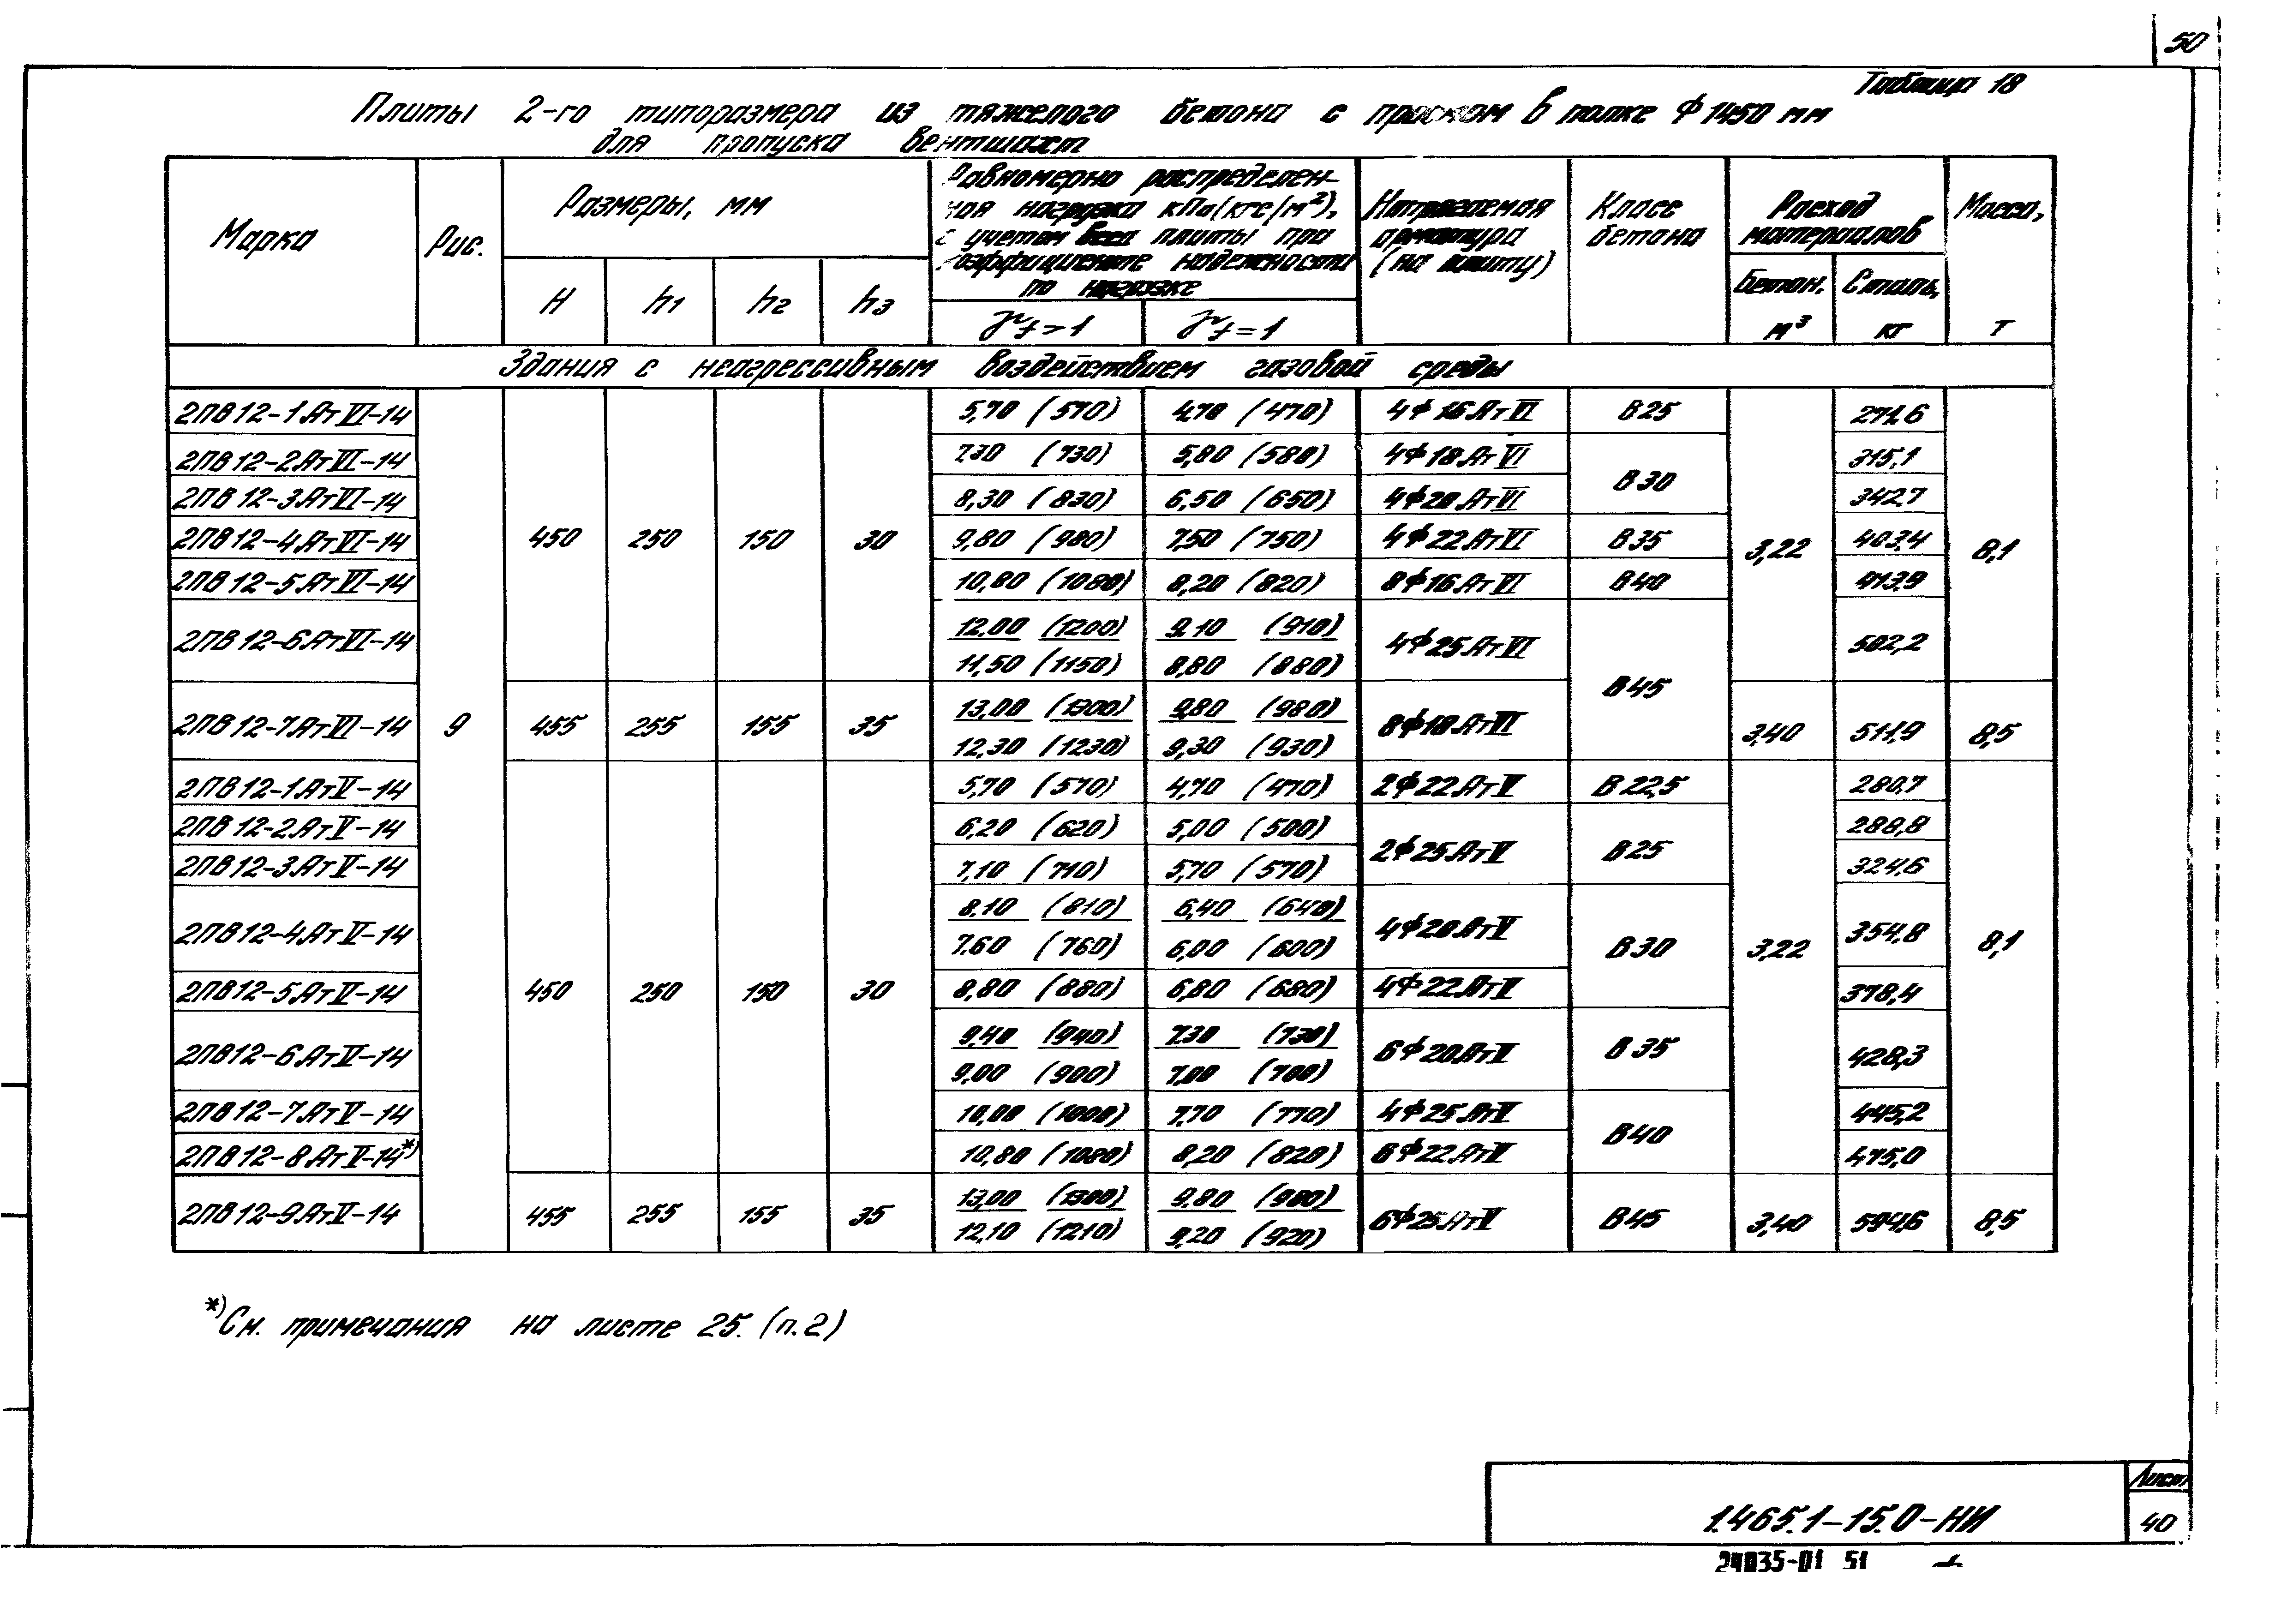 50
Таблица 18
Плиты 2-го типоразмера из тяжелого бетона с проемом в полке Ф 1450 мм
для пропуска вентшахт
Марка
Рис.
Размеры, мм
H h1 h2 h3
Равномерно распределен-
ная нагрузка кПа (кгс/м²),
с учетом веса плиты при
коэффициенте надежности
по нагрузке
γf > 1 γf = 1
Напрягаемая
арматура
(на плиту)
Класс
бетона
Расход
материалов
Бетон, м³
Сталь, кг
Масса, т
Здания с неагрессивным воздействием газовой среды
2ПВ12-1АтVI-14 5,70 (570) 4,70 (470) 4Ф16АтVI В25 271,6
2ПВ12-2АтVI-14 7,30 (730) 5,80 (580) 4Ф18АтVI 315,1
В30
2ПВ12-3АтVI-14 8,30 (830) 6,50 (650) 4Ф20АтVI 342,7
2ПВ12-4АтVI-14 450 250 150 30 9,80 (980) 7,50 (750) 4Ф22АтVI В35 3,22 403,4 8,1
2ПВ12-5АтVI-14 10,80 (1080) 8,20 (820) 8Ф16АтVI В40 413,9
12,00 (1200) 9,10 (910)
2ПВ12-6АтVI-14 4Ф25АтVI 502,2
11,50 (1150) 8,80 (880)
В45
13,00 (1300) 9,80 (980)
2ПВ12-7АтVI-14 9 455 255 155 35 8Ф18АтVI 3,40 511,9 8,5
12,30 (1230) 9,30 (930)
2ПВ12-1АтV-14 5,70 (570) 4,70 (470) 2Ф22АтV В22,5 280,7
2ПВ12-2АтV-14 6,20 (620) 5,00 (500) 288,8
2Ф25АтV В25
2ПВ12-3АтV-14 7,10 (710) 5,70 (570) 324,6
8,10 (810) 6,40 (640)
2ПВ12-4АтV-14 4Ф20АтV 354,8
7,60 (760) 6,00 (600)
В30 3,22 8,1
2ПВ12-5АтV-14 450 250 150 30 8,80 (880) 6,80 (680) 4Ф22АтV 378,4
9,40 (940) 7,30 (730)
2ПВ12-6АтV-14 6Ф20АтV В35 428,3
9,00 (900) 7,00 (700)
2ПВ12-7АтV-14 10,00 (1000) 7,70 (770) 4Ф25АтV 445,2
В40
2ПВ12-8АтV-14*) 10,80 (1080) 8,20 (820) 6Ф22АтV 475,0
13,00 (1300) 9,80 (980)
2ПВ12-9АтV-14 455 255 155 35 6Ф25АтV В45 3,40 594,6 8,5
12,10 (1210) 9,20 (920)
*) См. примечания на листе 25. (п.2)
1.465.1-15.0-НИ
Лист
40
24035-01 51